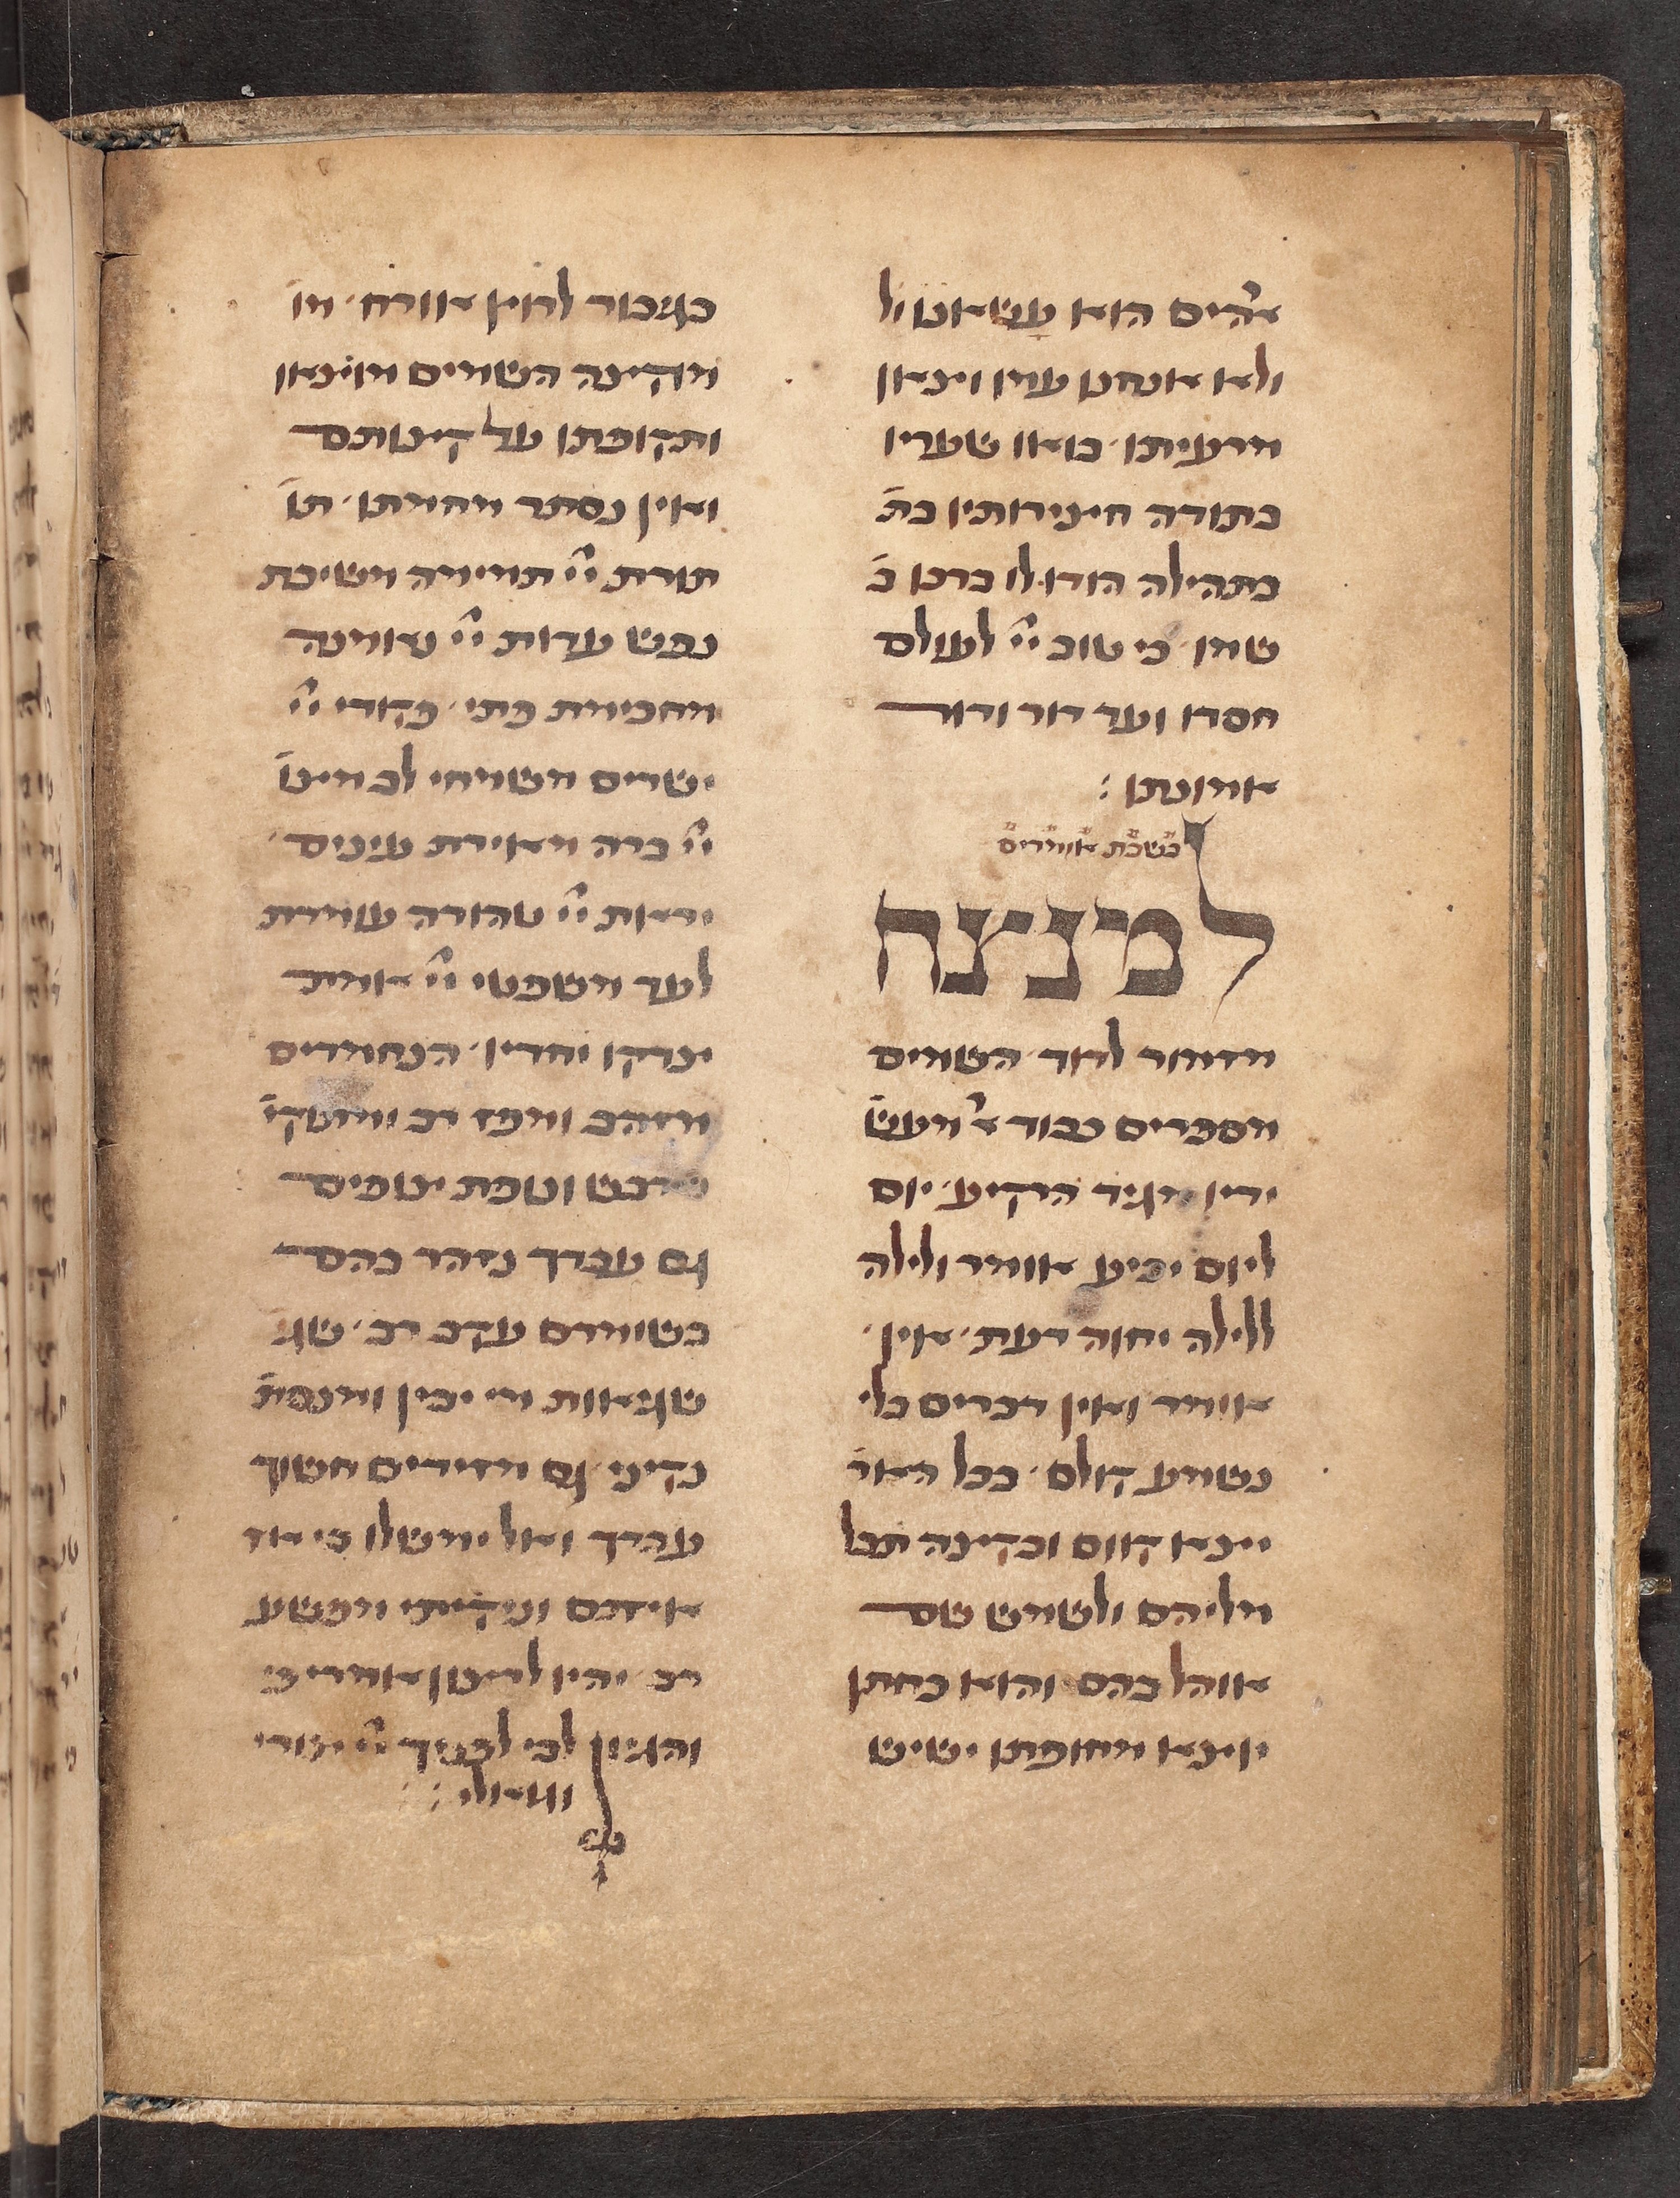 אלהים הוא עשאנו ול
ולא אנחנו עמו וצאן
מרעיתו· בואו שעריו
בתודה חצירותיו בת
בתהילה הודו לו ברכו ב
שמו· כי טוב יי לעולם
חסדו ועד דור ודור
אמונתו:
בשבת אומרים
למנצח
מזמור לדוד· השמים
מספרים כבוד אל מעש
ידיו מגיד הרקיע· יום
ליום יביע אומר ולילה
ללילה יחוה דעת· אין·
אומר ואין דברים בלי
נשמע קולם· בכל האר
יצא קוום ובקצה תבל
מליהם ולשמש שם
אוהל בהם והוא כחתן
יוצא מחופתו ישיש
כגבור לרוץ אורח· מו
מקצה השמים מוצאו
ותקופתו על קצותם
ואין נסתר מחמתו· תו
תורת יי תמימה משיבת
נפש עדות יי נאמנה
מחכימת פתי· פקודי יי
ישרים משמחי לב מצו
יי ברה מאירת עינים·
יראת יי טהורה עומדת
לעד משפטי יי אמת
צדקו יחדיו· הנחמדים
מזהב ומפז רב ומתוקי
מדבש ונופת צופים
גם עבדך נזהר בהם
בשומרם עקב רב· שג
שגיאות מי יבין ומנסת
נקיני· גם מזידים חשוך
עבדך ואל ימשלו בי אז
איתם וניקיתי מפשע
רב· יהיו לרצון אמרי פי
והגיון לבי לפניך יי צורי
וגואלי: